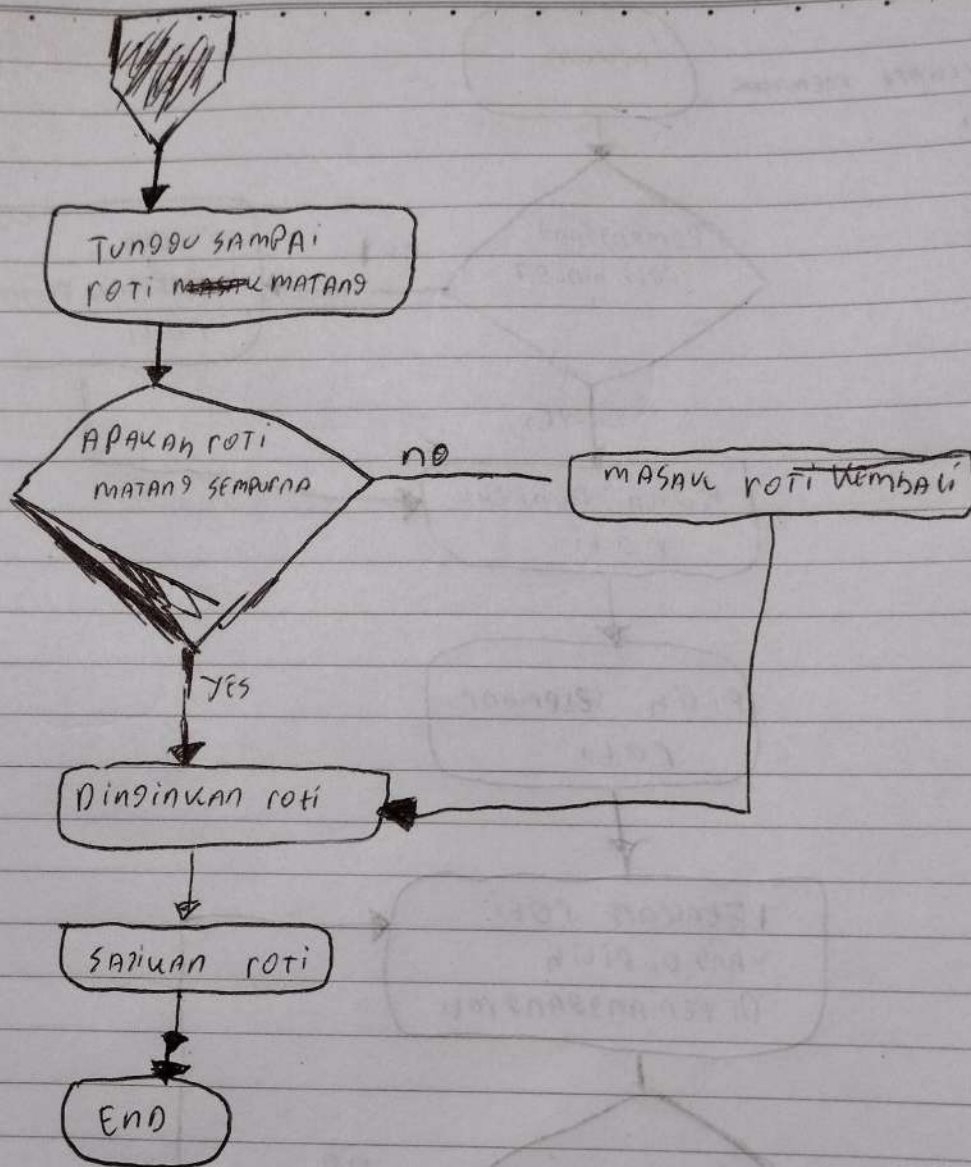 TUNGGU SAMPAI
ROTI MATANG
APAKAH ROTI
MATANG SEMPURNA
NO
MASAK ROTI KEMBALI
YES
DINGINKAN ROTI
SAJIKAN ROTI
END